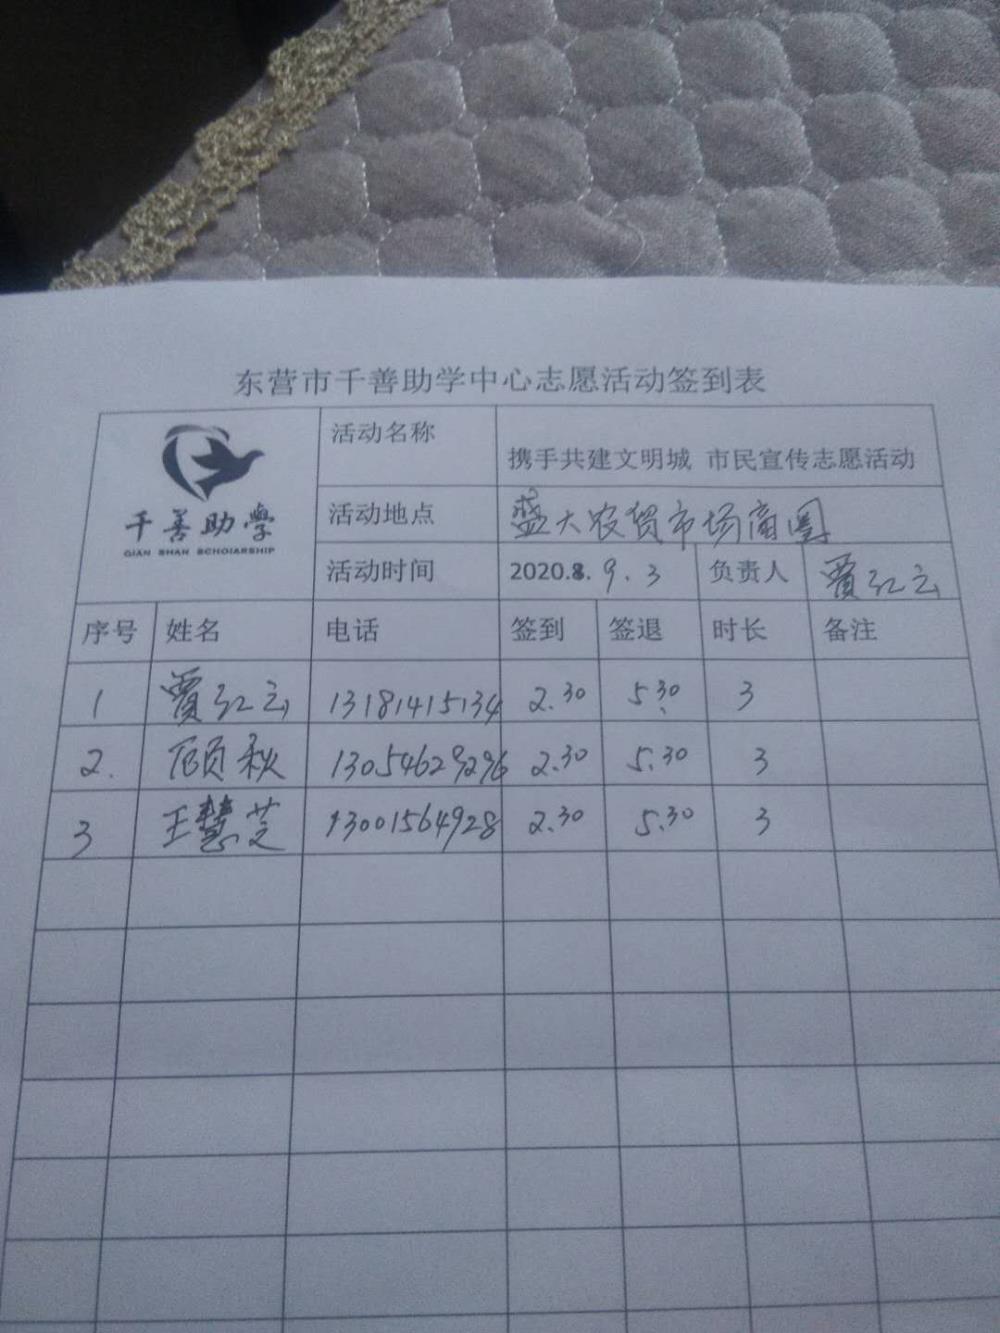 东营市千善助学中心志愿活动签到表
千善助学
QIAN SHAN SCHOIARSHIP
活动名称
携手共建文明城 市民宣传志愿活动
活动地点 盛大农贸市场商圈
活动时间 2020.8. 9.3 负责人 贾红云
序号 姓名 电话 签到 签退 时长 备注
1 贾红云 13181415134 2.30 5.30 3
2. 顾秋 13054629296 2.30 5.30 3
3 王慧芝 13001564928 2.30 5.30 3